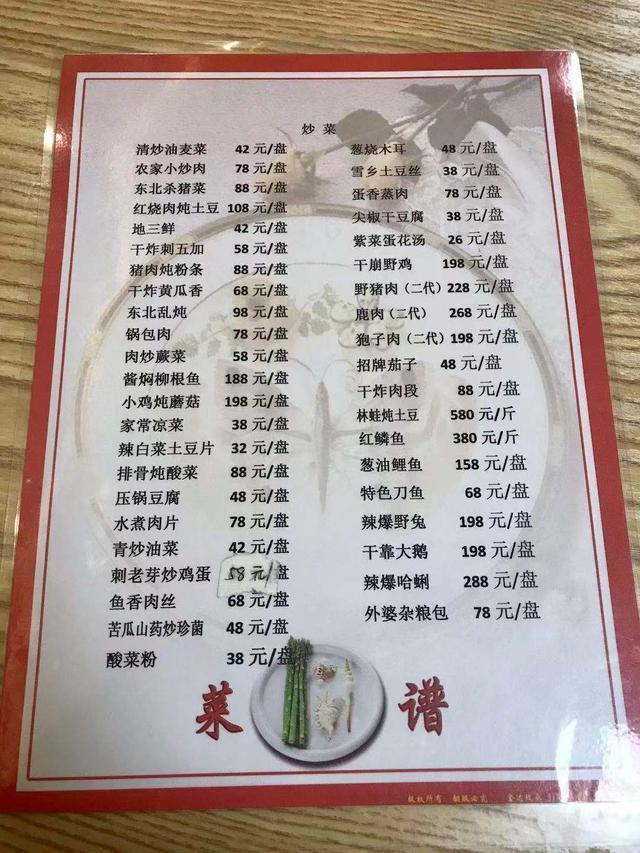 炒 菜
清炒油麦菜 42 元/盘
农家小炒肉 78 元/盘
东北杀猪菜 88 元/盘
红烧肉炖土豆 108 元/盘
地三鲜 42 元/盘
干炸刺五加 58 元/盘
猪肉炖粉条 88 元/盘
干炸黄瓜香 68 元/盘
东北乱炖 98 元/盘
锅包肉 78 元/盘
肉炒蕨菜 58 元/盘
酱焖柳根鱼 188 元/盘
小鸡炖蘑菇 198 元/盘
家常凉菜 38 元/盘
辣白菜土豆片 32 元/盘
排骨炖酸菜 88 元/盘
压锅豆腐 48 元/盘
水煮肉片 78 元/盘
青炒油菜 42 元/盘
刺老芽炒鸡蛋 58 元/盘
鱼香肉丝 68 元/盘
苦瓜山药炒珍菌 48 元/盘
酸菜粉 38 元/盘
葱烧木耳 48 元/盘
雪乡土豆丝 38 元/盘
蛋香蒸肉 78 元/盘
尖椒干豆腐 38 元/盘
紫菜蛋花汤 26 元/盘
干崩野鸡 198 元/盘
野猪肉（二代） 228 元/盘
鹿肉（二代） 268 元/盘
狍子肉（二代） 198 元/盘
招牌茄子 48 元/盘
干炸肉段 88 元/盘
林蛙炖土豆 580 元/斤
红鳞鱼 380 元/斤
葱油鲤鱼 158 元/盘
特色刀鱼 68 元/盘
辣爆野兔 198 元/盘
干靠大鹅 198 元/盘
辣爆哈蜊 288 元/盘
外婆杂粮包 78 元/盘
菜 谱
版权所有 翻版必究